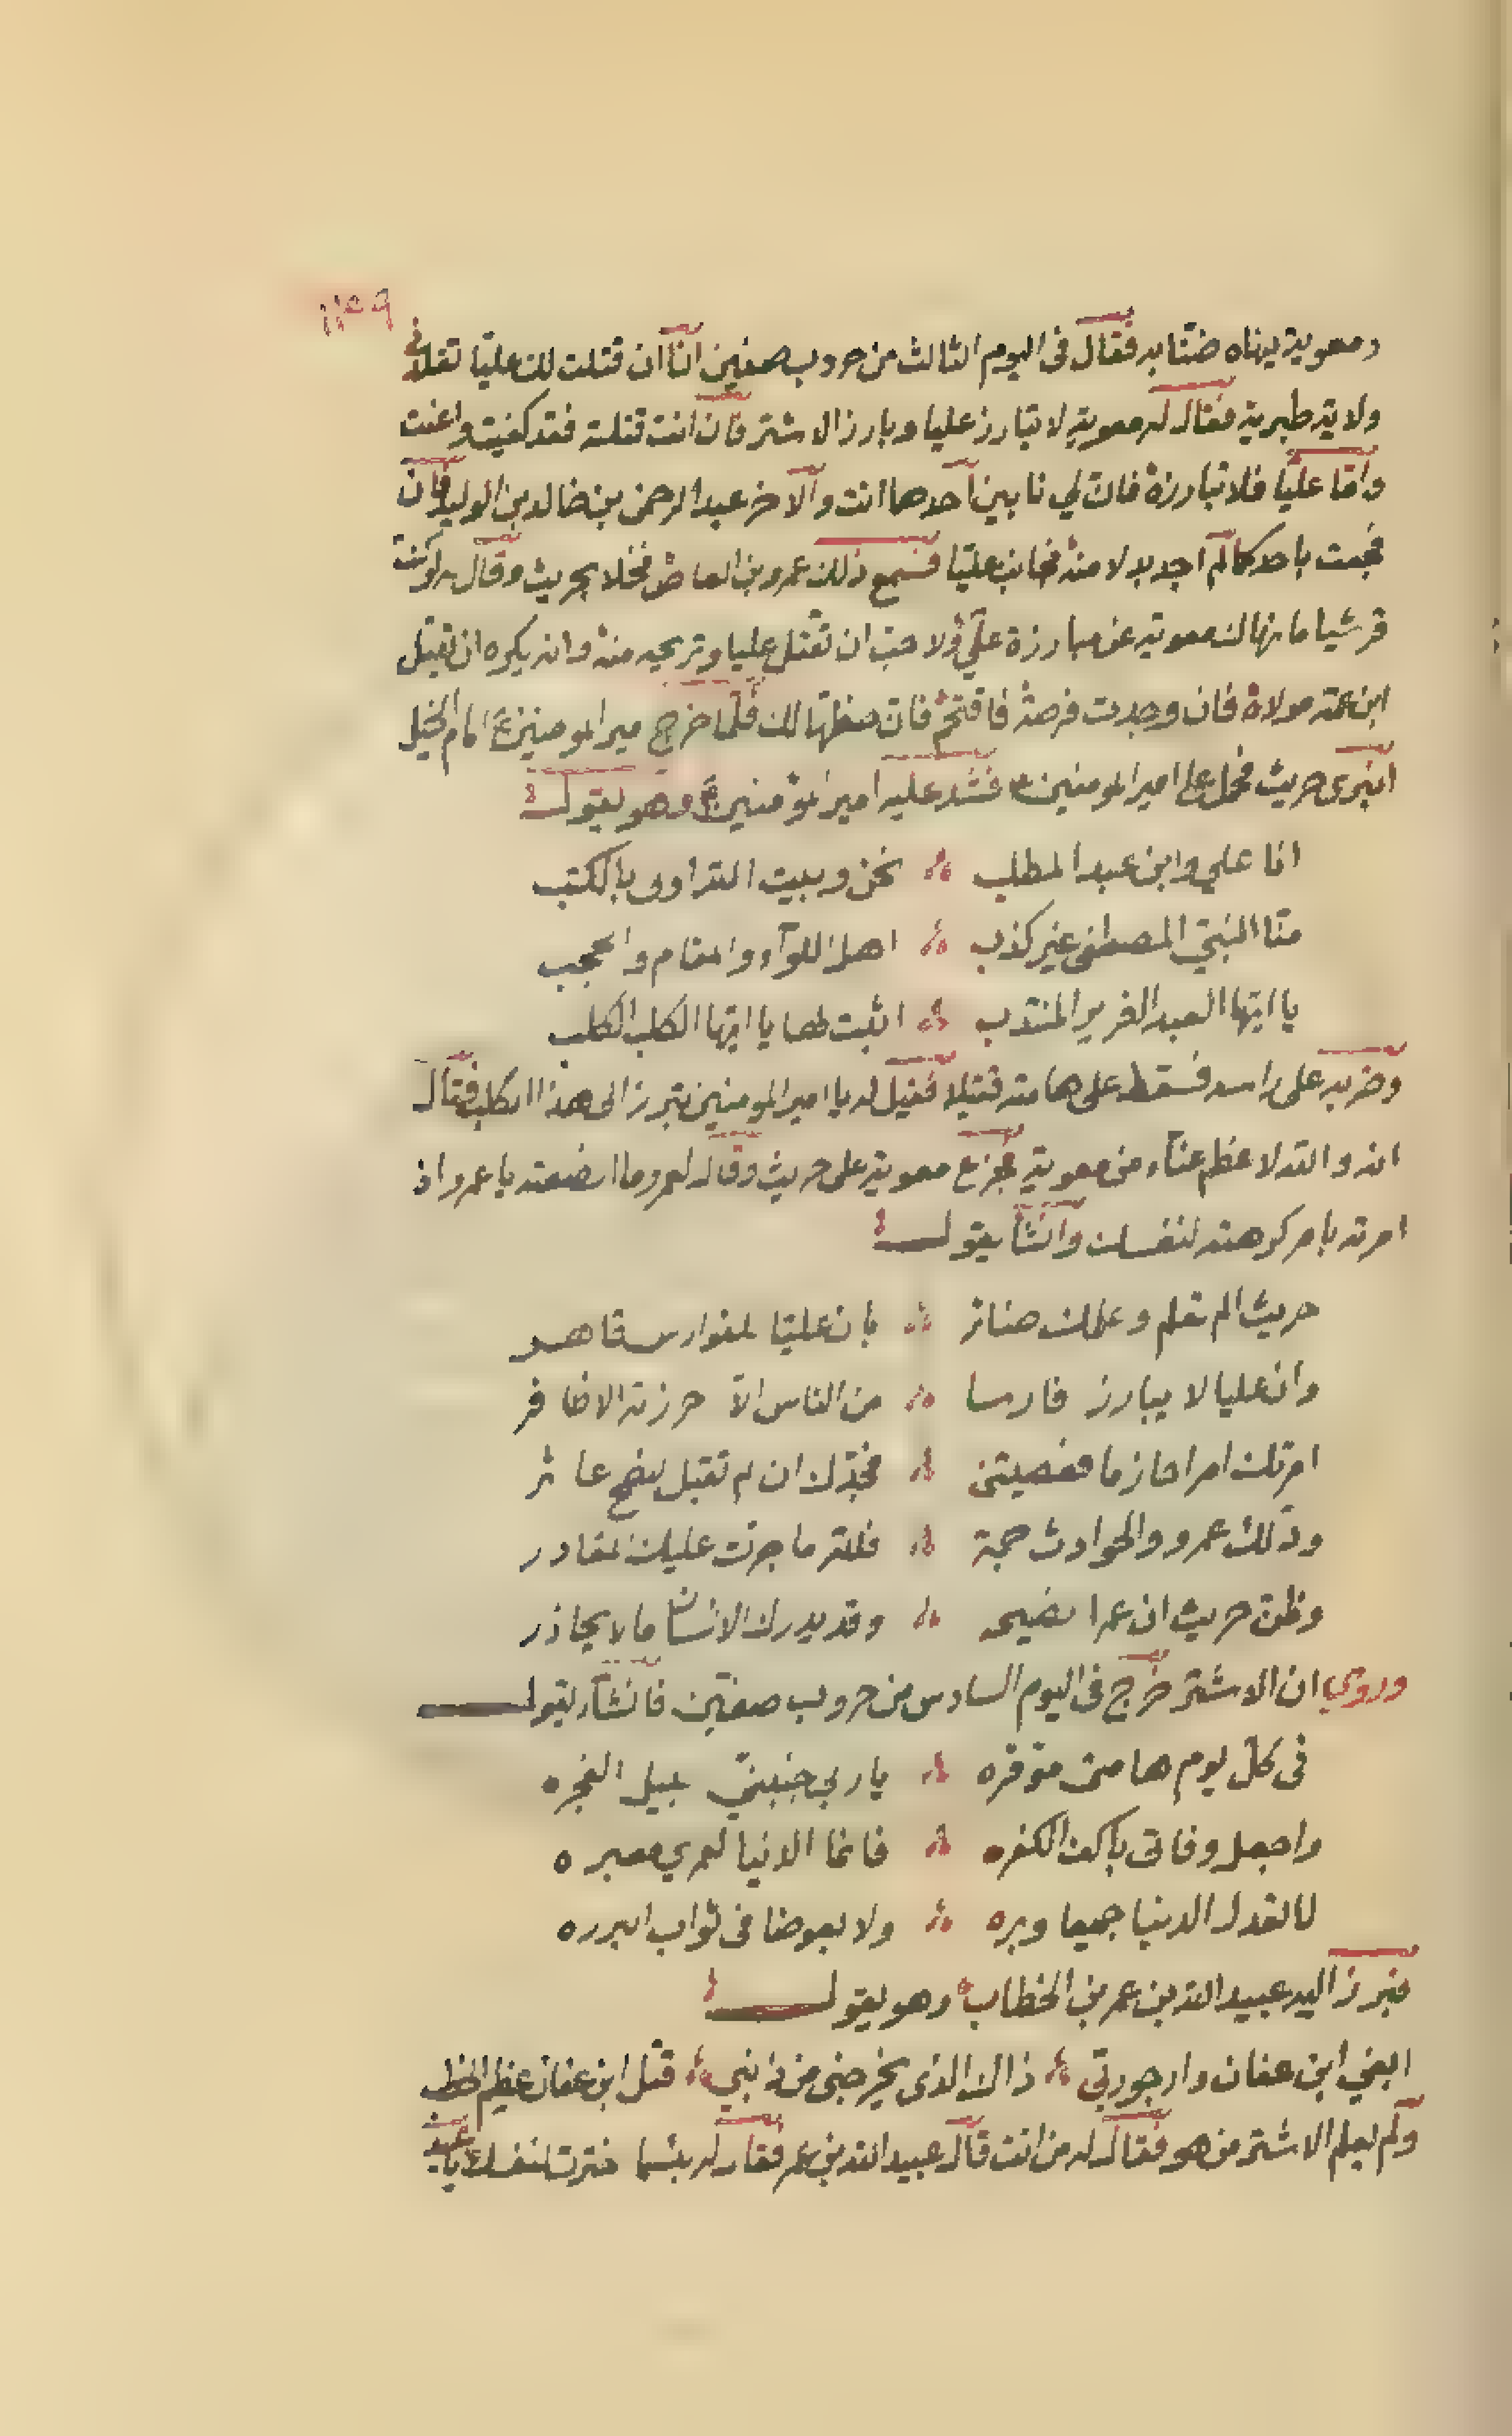 ١٣٩
ومعوية ينهاه ضنّا به فقال فى اليوم الثالث من حروب صفين انا ان قتلت لك عليّا تقلدنى
ولاية طبرية فقال له معوية لا تبارز عليا وبارز الاشتر فان انت قتلته فقد كفيت واغنت
وامّا عليّا فلا تبارزه فان لي نابين احدهما انت والاخر عبد الرحمن بن خالد بن الوليد فان
فجعت باحدكما لم اجد بدلا منه فجانب عليّا فسمع ذلك عمرو بن العاص فخلا بحريث وقال له لو كنت
قرشيا ما نهاك معوية عن مبارزة علي ولاحب ان تقتل عليا وتريحه منه وانه يكره ان تقتل
ابن عمه مولاه فان وجدت فرصة فاقتحم فان حظها لك فلمّا خرج امير المومنين ع امام الخيل
انبرى حريث فحمل على امير المومنين فشد عليه امير المؤمنين وهو يقول
انا علي وابن عبد المطلب نحن وبيت الله اولى بالكتب
منّا النبيّ المصطفى غير كذب اهل اللوآء والمقام والحجب
يا ايّها العبد الغرير المنتدب اثبت لها يا ايّها الكلب الكلب
وضربه على راسه فسقط على هامته قتيلا فقيل له يا امير المومنين تبرز الى هذا الكلب فقال
انه والله لاعظم عنآء من معوية فجزع معوية على حريث وقال لعمرو ما انصفته يا عمرو اذ
امرته بامر كرهته لنفسك وانشأ يقول
حريث الم تعلم وعلمك ضائر بان عليّا للفوارس قاهر
وان عليا لا يبارز فارسا من الناس الّا حرزته الاظافر
امرتك امرا حازما فعصيتنى فجدّك ان لم تقبل النصح عاثر
ودلّك عمرو والحوادث جمة فلله ما جرّت عليك المقادر
وظن حريث ان عمرا نصيحه وقد يدرك الانسان ما لا يحاذر
وروي ان الاشتر خرج فى اليوم السادس من حروب صفين فانشآء يقول
فى كل يوم هامتى موقره يا رب جنبنى سبيل الفجره
واجعل وفاتى باكف الكفره فانما الدنيا لعمري معبره
لا تعدل الدنيا جميعا وبره ولا بعوضا فى ثواب البرره
فبرز اليه عبيد الله بن عمر بن الخطاب وهو يقول
ابغي ابن عفان وارجو ربّي ذاك الذى يخرجنى من ذنبي قتل ابن عفان عظيم الخطب
ولم يعلم الاشتر من هو فقال له من انت قال عبيد الله بن عمر فقال له بئسما اخترت لنفسك يا بن